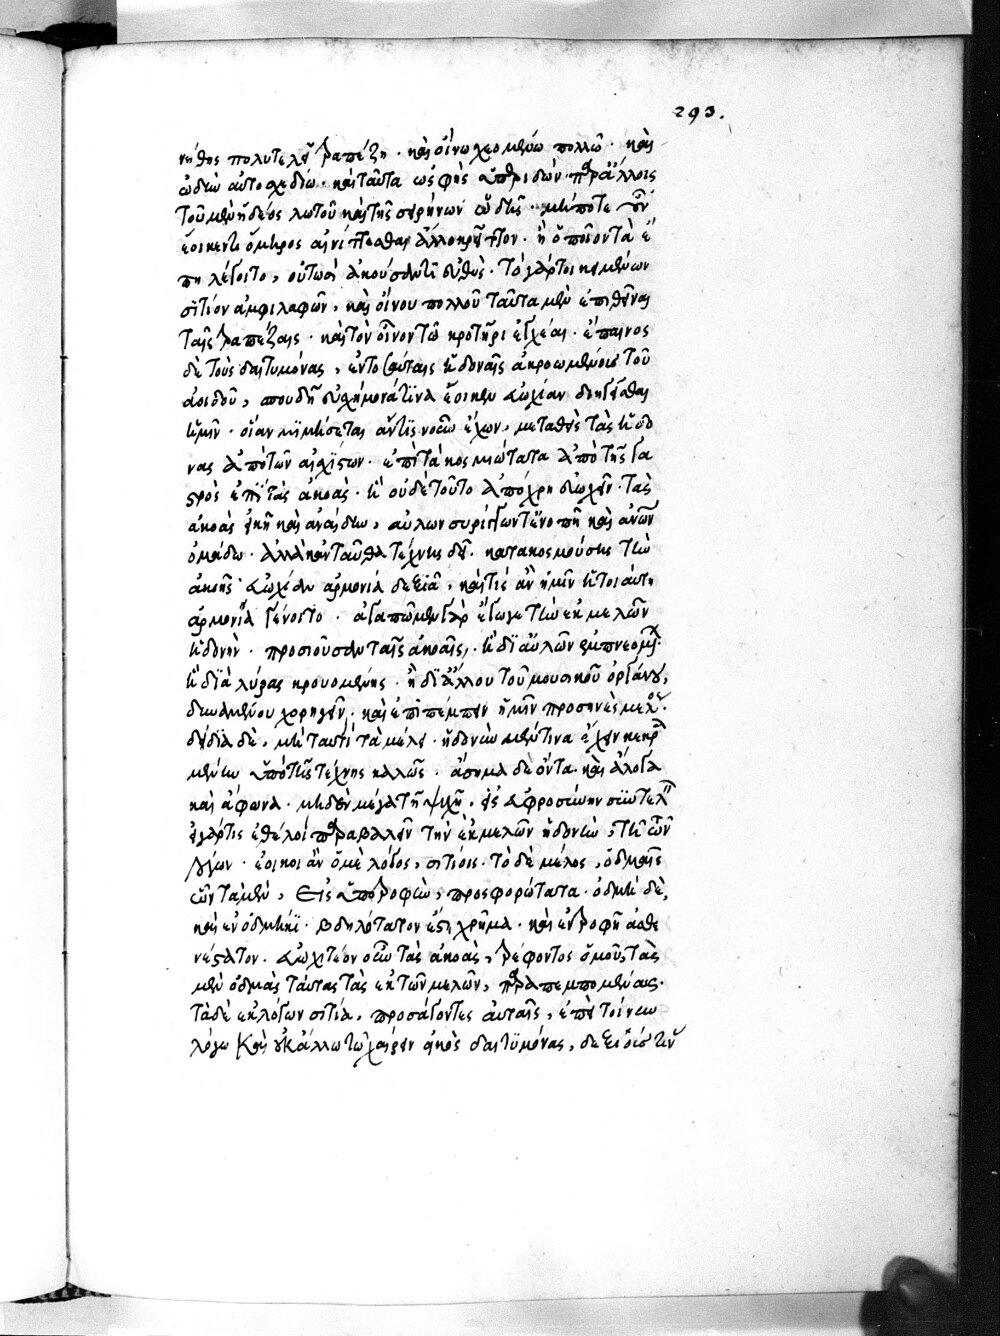 293.
νήθης πολυτελεῖ τραπέζῃ· καὶ οἰνοχοουμένῳ πολλῷ· καὶ
ᾠδῶν αὐτοσχεδίῳ· καὶ ταῦτα ὡς φὴς ὑπεριδὼν παρ' ἄλλοις
τοῦ μὲν ἡδέος λωτοῦ καὶ τῆς σειρήνων ᾠδῆς· μήποτε οὖν
ἔοικεν ὅμηρος αἰνίττεσθαι ἀλλοκρυπτον· ἢ ὁποῖον τὰ ἔ
πη λέγοι το, οὑτωσὶ ἀκούσαντι εὐθὺς· Τὸ γάρτοι κειμένων
σιτίον ἀμφιλαφῶν, καὶ οἴνου πολλοῦ ταῦτα μὲν ἐπιθεῖναι
ταῖς τραπέζαις· καὶ τὸν οἶνον τῷ κρατῆρι ἐγχέαι· ἐπαινος
δὲ τοὺς δαιτυμόνας, ἐν τοιαύταις ἡδοναῖς ἀκροωμένοις τοῦ
ἀοιδοῦ, σπουδῇ εὐσχήμονά τινα ἔοικεν εὐωχίαν διηγεῖσθαι
ἡμῖν· οἵαν μιμήσεται ἄντις νοῦν ἔχων, μεταθεὶς τὰς ἡδο
νὰς ἀπὸ τῶν αἰσχίστων· ἐπὶ τὰ κοσμιώτατα ἀπὸ τῆς γα
στρὸς ἐπὶ τὰς ἀκοὰς· ἢ οὐδὲ τοῦτο ἀπόχρη εὐωχεῖν· τὰς
ἀκοὰς εἰκῆ καὶ ἀναίδην, αὐλῶν συρίγγων τ' ἐνοπῇ καὶ ἀνθρώπων
ὁμάδῳ· ἀλλὰ κἀνταῦθα τέχνης δεῖ· κατακοσμούσης τὴν
ἀκοῆς εὐωχίαν ἁρμονίᾳ δεξιᾷ, καὶ τίς ἂν ἡμῖν ἡ τοιαύτη
ἁρμονία γένοιτο· ἀγαπῶμεν γὰρ ἔγωγε τὴν ἐκ μελῶν
ἡδονὴν· προσιοῦσαν ταῖς ἀκοαῖς, ἢ δι' αὐλῶν ἐμπνεομένην·
ἢ διὰ λύρας κρουομένης· ἢ δι' ἄλλου του μουσικοῦ ὀργάνου,
δυναμένου χορηγεῖν· καὶ ἐπιπέμπειν ἡμῖν προσηνὲς μέλος·
δέδια δὲ, μὴ ταυτὶ τὰ μέλη· ἡδονὴν μέν τινα ἔχειν κεκρα
μένην ὑπὸ τῆς τέχνης καλῶς· ἄσημα δὲ ὄντα καὶ ἄλογα
καὶ ἄφωνα· μηδὲν μέγα τῇ ψυχῇ· εἰς εὐφροσύνην συντελεῖ
εἰ γάρτις ἐθέλοι παραβαλεῖν τὴν ἐκ μελῶν ἡδονὴν, τῇ ἐκ τῶν
λόγων· ἔοικοι ἂν ὁ μὲν λόγος, σιτίοις· τὸ δὲ μέλος, ὀδμαῖς
ὧν τὰ μὲν, Εἰς ὑποτροφὴν, προσφορώτατα· ὀδμὴ δὲ,
καὶ ἐν ὀδμῇ· βδηλότατον ἐστι χρῆμα· καὶ ἐν τροφῇ ἀσθε
νέστατον· εὐωχητέον οὖν τὰς ἀκοὰς, τρέφοντος ὁμοῦ, τὰς
μὲν ὀδμὰς ταύτας τὰς ἐκ τῶν μελῶν, παραπεμπομένους·
τὰ δὲ ἐκ λόγων σιτία, προσάγοντες αὐταῖς, ἐπεὶ τοίνυν
λόγῳ καὶ οὐκ ἄλλῳ τῳ χαίρειν εἰκὸς δαιτυμόνας, δεξιοῖς τὴν